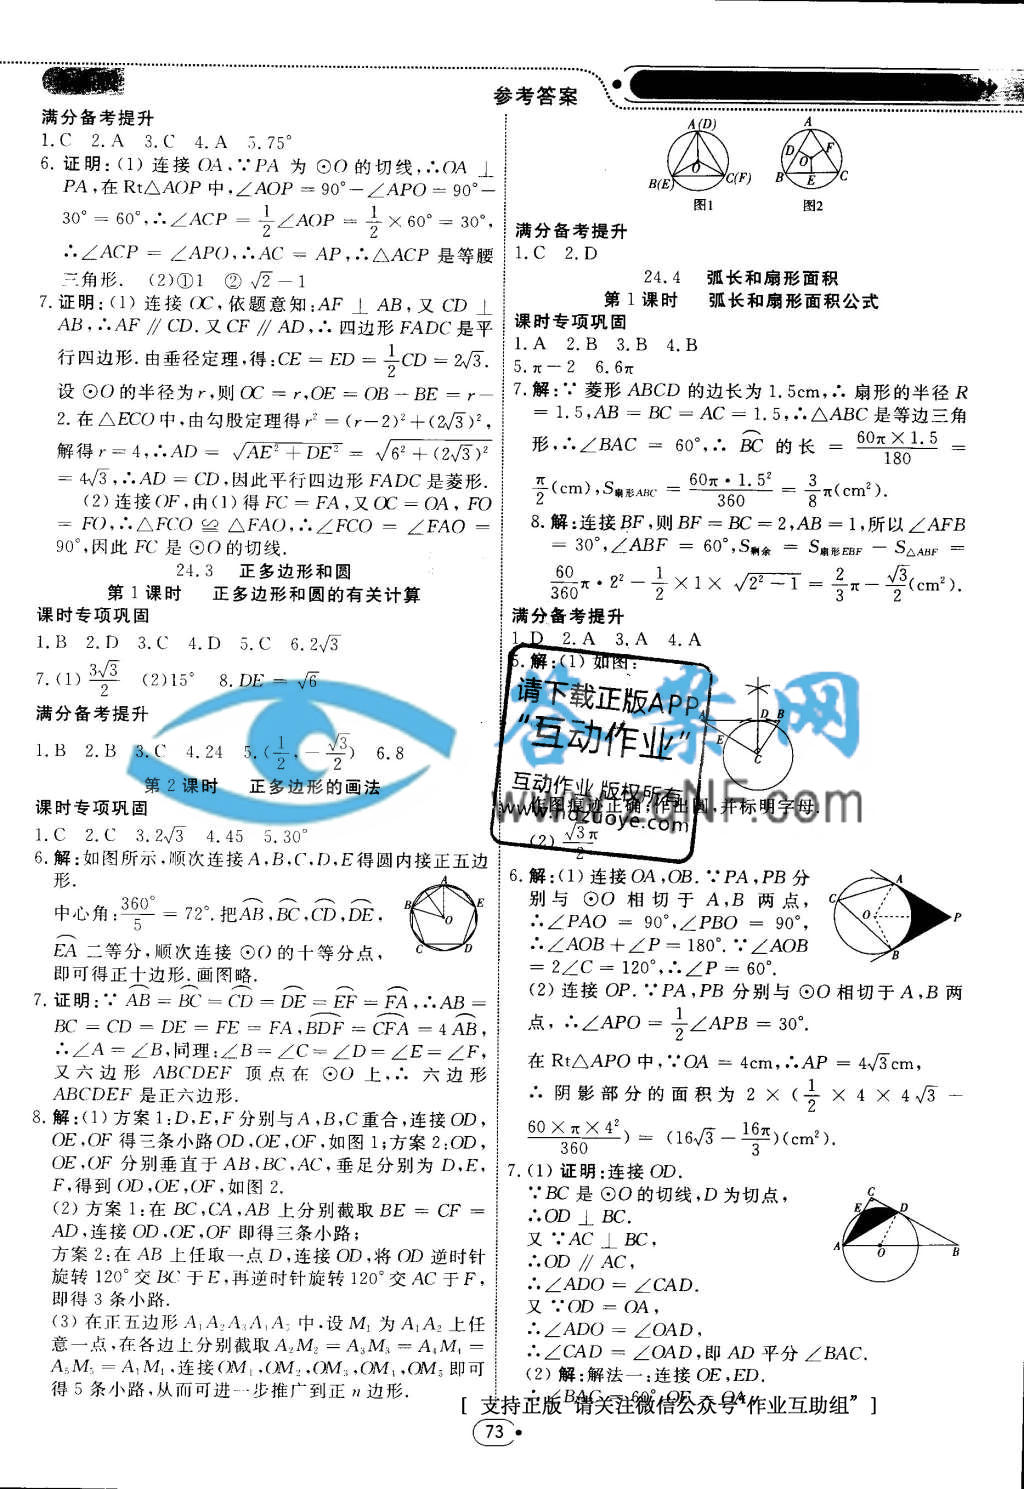 参考答案
满分备考提升
1.C 2.A 3.C 4.A 5.75°
6.证明:(1)连接OA,∵PA为⊙O的切线,∴OA⊥
PA,在Rt△AOP中,∠AOP=90°-∠APO=90°-
30°=60°,∴∠ACP=1/2∠AOP=1/2×60°=30°,
∴∠ACP=∠APO,∴AC=AP,∴△ACP是等腰
三角形. (2)①1 ②√2-1
7.证明:(1)连接OC,依题意知:AF⊥AB,又CD⊥
AB,∴AF∥CD.又CF∥AD,∴四边形FADC是平
行四边形.由垂径定理,得:CE=ED=1/2CD=2√3.
设⊙O的半径为r,则OC=r,OE=OB-BE=r-
2.在△ECO中,由勾股定理得r²=(r-2)²+(2√3)²,
解得r=4,∴AD=√(AE²+DE²)=√(6²+(2√3)²)
=4√3,∴AD=CD,因此平行四边形FADC是菱形.
(2)连接OF,由(1)得FC=FA,又OC=OA,FO
=FO,∴△FCO≌△FAO,∴∠FCO=∠FAO=
90°,因此FC是⊙O的切线.
24.3 正多边形和圆
第1课时 正多边形和圆的有关计算
课时专项巩固
1.B 2.D 3.C 4.D 5.C 6.2√3
7.(1)3√3/2 (2)15° 8.DE=√6
满分备考提升
1.B 2.B 3.C 4.24 5.(1/2,-√3/2) 6.8
第2课时 正多边形的画法
课时专项巩固
1.C 2.C 3.2√3 4.45 5.30°
6.解:如图所示,顺次连接A,B,C,D,E得圆内接正五边
形.
中心角:360°/5=72°.把AB⌒,BC⌒,CD⌒,DE⌒,
EA⌒二等分,顺次连接⊙O的十等分点,
即可得正十边形.画图略.
A
B
E
O
C
D
7.证明:∵AB⌒=BC⌒=CD⌒=DE⌒=EF⌒=FA⌒,∴AB=
BC=CD=DE=FE=FA,BDF⌒=CFA⌒=4AB⌒,
∴∠A=∠B,同理:∠B=∠C=∠D=∠E=∠F,
又六边形ABCDEF顶点在⊙O上,∴六边形
ABCDEF是正六边形.
8.解:(1)方案1:D,E,F分别与A,B,C重合,连接OD,
OE,OF得三条小路OD,OE,OF,如图1;方案2:OD,
OE,OF分别垂直于AB,BC,AC,垂足分别为D,E,
F,得到OD,OE,OF,如图2.
(2)方案1:在BC,CA,AB上分别截取BE=CF=
AD,连接OD,OE,OF即得三条小路;
方案2:在AB上任取一点D,连接OD,将OD逆时针
旋转120°交BC于E,再逆时针旋转120°交AC于F,
即得3条小路.
(3)在正五边形A₁A₂A₃A₄A₅中,设M₁为A₁A₂上任
意一点,在各边上分别截取A₂M₂=A₃M₃=A₄M₄=
A₅M₅=A₁M₁,连接OM₁,OM₂,OM₃,OM₄,OM₅即可
得5条小路,从而可进一步推广到正n边形.
A(D)
O
B(E)
C(F)
图1
A
D
F
O
B
E
C
图2
满分备考提升
1.C 2.D
24.4 弧长和扇形面积
第1课时 弧长和扇形面积公式
课时专项巩固
1.A 2.B 3.B 4.B
5.π-2 6.6π
7.解:∵菱形ABCD的边长为1.5cm,∴扇形的半径R
=1.5,AB=BC=AC=1.5,∴△ABC是等边三角
形,∴∠BAC=60°,∴BC⌒的长=60π×1.5/180=
π/2(cm),S扇形ABC=60π·1.5²/360=3/8π(cm²).
8.解:连接BF,则BF=BC=2,AB=1,所以∠AFB
=30°,∠ABF=60°,S剩余=S扇形EBF-S△ABF=
60/360π·2²-1/2×1×√(2²-1)=2/3π-√3/2(cm²).
满分备考提升
1.D 2.A 3.A 4.A
5.解:(1)如图:
A
D
B
E
C
作图痕迹正确,作出圆,并标明字母.
(2)√3π/2
请下载正版APP
“互动作业”
互动作业 版权所有
www.hdzuoye.com
答案网
www.zqNF.com
6.解:(1)连接OA,OB.∵PA,PB分
别与⊙O相切于A,B两点,
∴∠PAO=90°,∠PBO=90°,
∴∠AOB+∠P=180°.∵∠AOB
=2∠C=120°,∴∠P=60°.
A
C
O
P
B
(2)连接OP.∵PA,PB分别与⊙O相切于A,B两
点,∴∠APO=1/2∠APB=30°.
在Rt△APO中,∵OA=4cm,∴AP=4√3cm,
∴阴影部分的面积为2×(1/2×4×4√3-
60×π×4²/360)=(16√3-16π/3)(cm²).
7.(1)证明:连接OD.
∵BC是⊙O的切线,D为切点,
∴OD⊥BC.
又∵AC⊥BC,
∴OD∥AC,
∴∠ADO=∠CAD.
又∵OD=OA,
∴∠ADO=∠OAD,
∴∠CAD=∠OAD,即AD平分∠BAC.
C
E
D
A
O
B
(2)解:解法一:连接OE,ED.
∵∠BAC=60°,OE=OA,
[ 支持正版 请关注微信公众号“作业互助组” ]
73